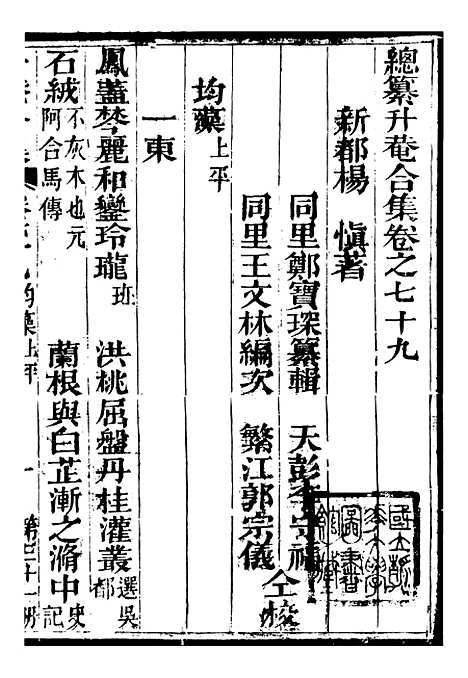 總纂升菴合集卷之七十九
新都楊　慎著
同里鄭寶琛纂輯　天彭李宗禧
同里王文林編次　繁江郭宗儀
仝校
均藻上平
一東
鳳蓋棽麗和鑾玲瓏班　洪桃屈盤丹桂灌叢選吳都
石絨不灰木也元阿合馬傳　蘭根與白芷漸之滫中史記